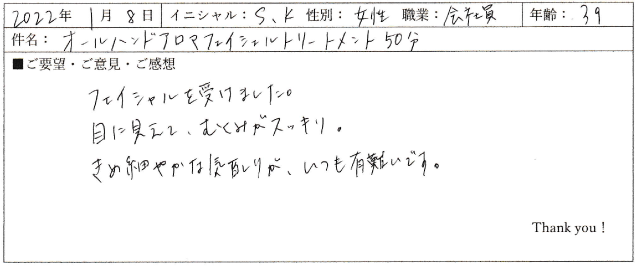 2022年 1月 8日 イニシャル：S.K 性別：女性 職業：会社員 年齢：39
件名：オールハンドアロマフェイシャルトリートメント50分
■ご要望・ご意見・ご感想
フェイシャルを受けました。
目に見えて、むくみがスッキリ。
きめ細やかな気配りが、いつも有難いです。
Thank you！